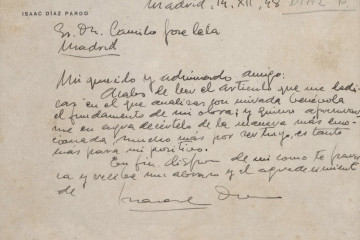 ISAAC DÍAZ PARDO
Madrid, 14, XII, 48
Sr. Dn. Camilo José Cela
Madrid
Mi querido y admirado amigo:
Acabo de leer el artículo que me dedi-
cas en el que analizas con mirada benévola
el fundamento de mi obra; y quiero apresurar
me en agradecértelo de la manera más emo-
cionada, mucho más por ser tuyo, es tanto
mas para mi positivo.
En fin, dispon de mi como te plazca
y recibe un abrazo y el agradecimiento
de Isaac Díaz